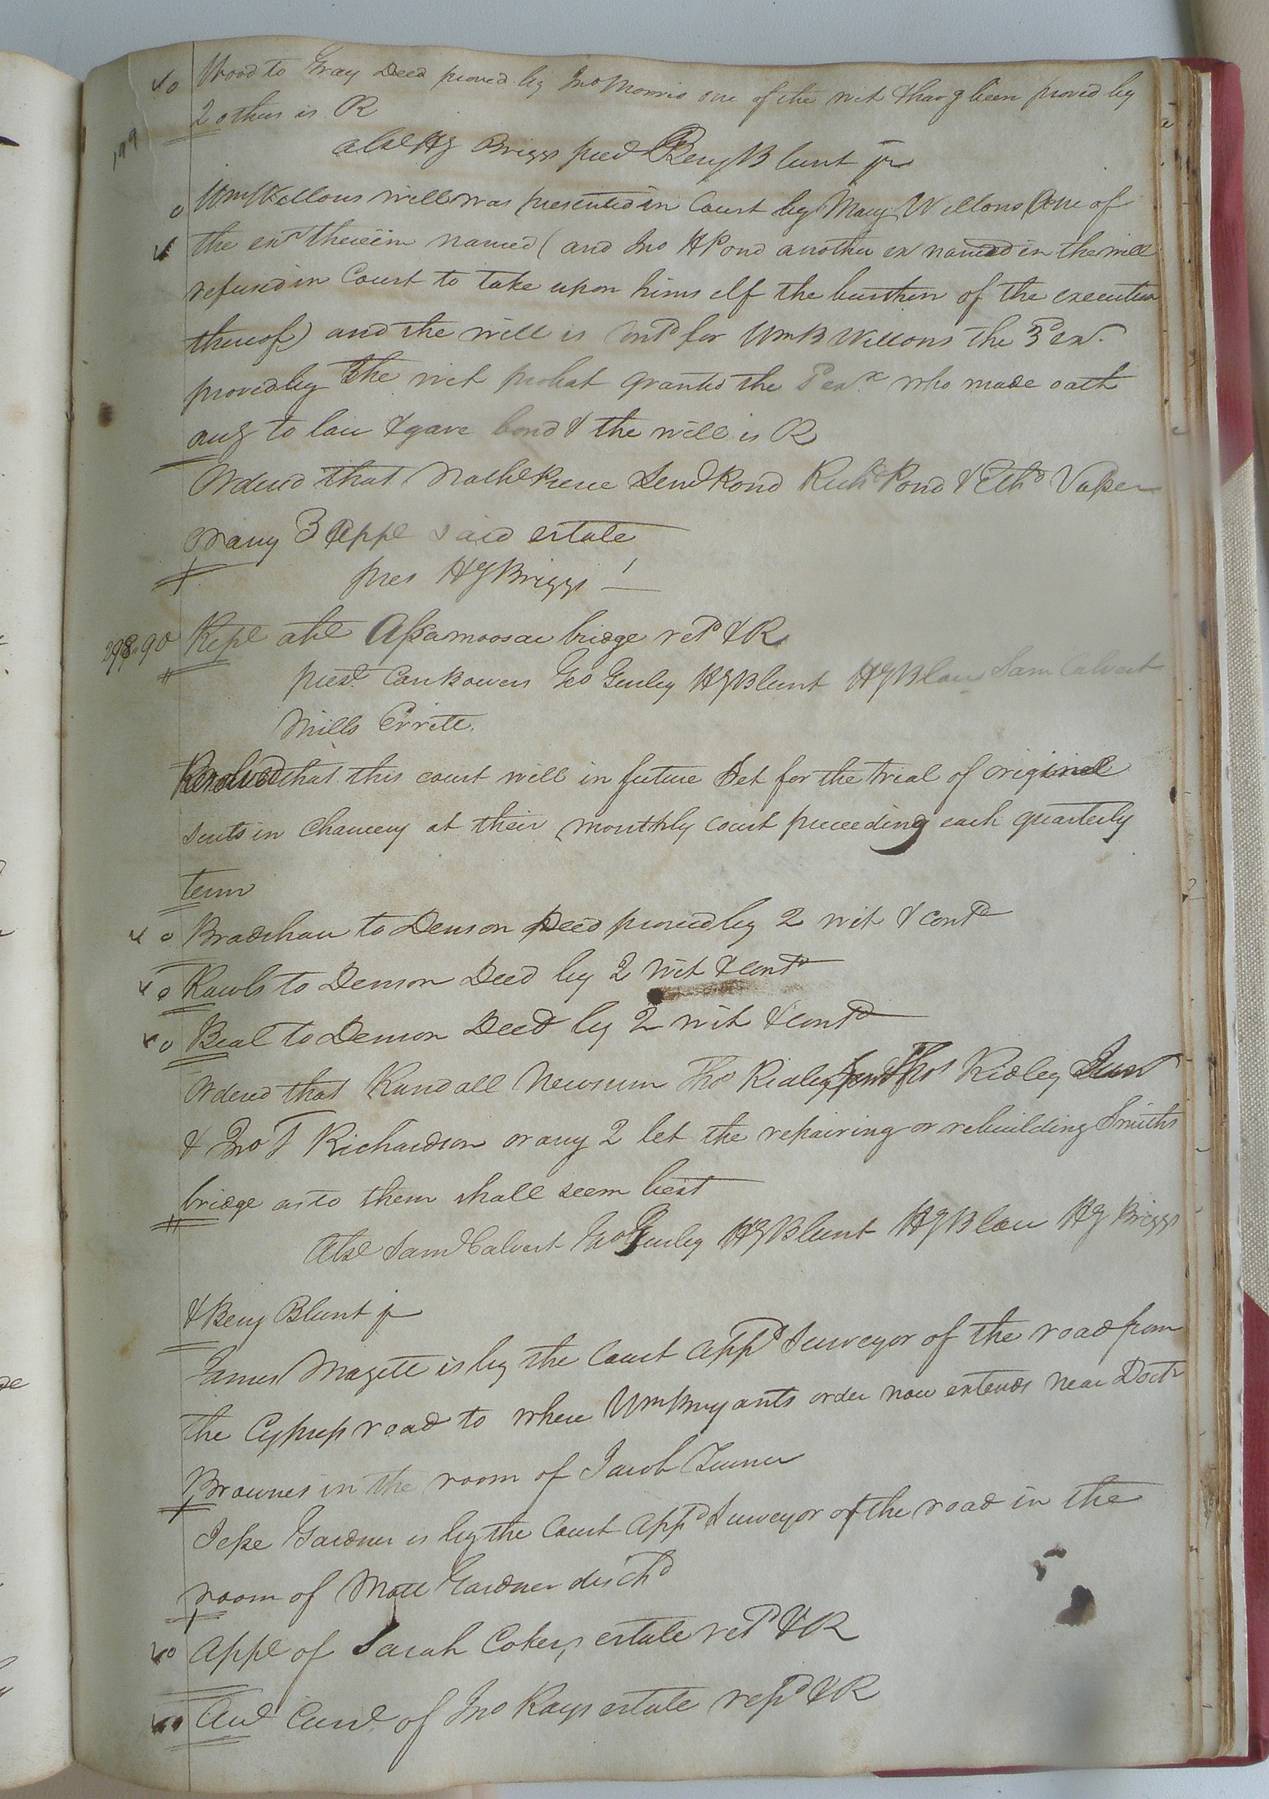 Wood to Gray Deed proved by Jno Morris one of the wit & havg been proved by
2 others is R
199
abst HG Briggs pred Benj Blunt jr
Wm Wellons will was presented in Court by Mary Wellons one of
the exrs therein named (and Jno H Pond another ex named in the will
refused in Court to take upon himself the burthen of the execution
thereof) and the will is contd for Wm B Wellons the 3d exr.
proved by the wit probat granted the sd exx who made oath
acg to law & gave bond & the will is R
Ordered that Nathl Pierce Saml Pond Richd Pond & Ethd Vasser
or any 3 appe said estate
pres HG Briggs
298.90 Repe abt Assamoosac bridge retd & R
prest. Geo Gurley HG Blunt HG Blow Saml Calvert
Mills
Resolved that this court will in future Set for the trial of original
suits in Chancery at their monthly court preceeding each quarterly
term
Bradshaw to Denson Deed proved by 2 wit & contd
Rawls to Denson Deed by 2 wit & contd
Beal to Denson Deed by 2 wit & contd
Ordered that Randall Newsum Thos Ridley Senr Thos Ridley Junr
& Jno T Richardson or any 2 let the repairing or rebuilding Smiths
bridge as to them shall seem best
Abst Saml Calvert Geo Gurley HG Blunt HG Blow HG Briggs
& Benj Blunt jr
James Magett is by the Court appd Surveyor of the road from
the Cypress road to where Wm Bryants order now extends near Doctr
Brownes in the room of Jacob Turner
Jesse Gardner is by the Court appd Surveyor of the road in the
room of Matt Gardner dischd
Appt of Sarah Cokers estate retd & R
Aud Curt. of Jno Kays estate retd & R